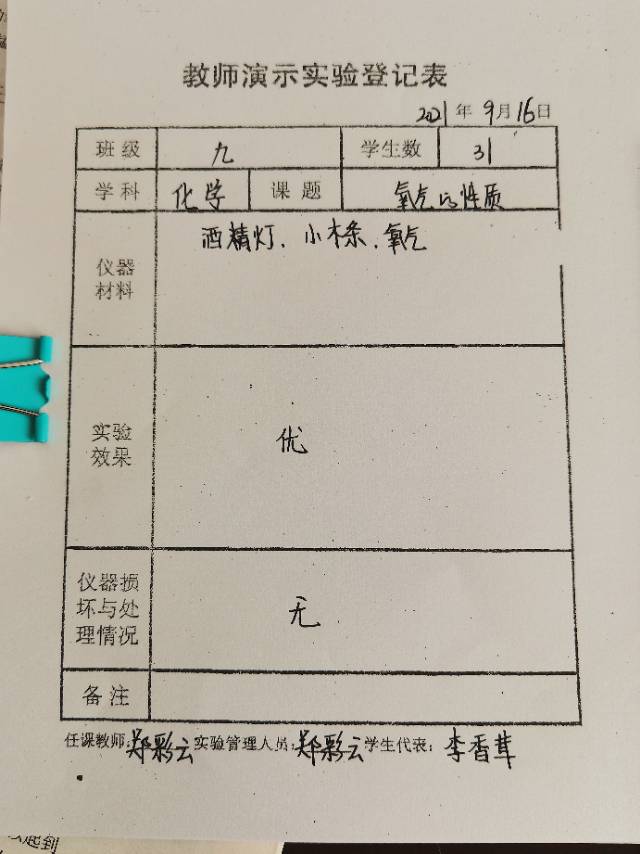 教师演示实验登记表
2021年9月16日
班级 九 学生数 31
学科 化学 课题 氧气的性质
仪器材料 酒精灯、小木条、氧气
实验效果 优
仪器损坏与处理情况 无
备注
任课教师:郑彩云 实验管理人员:郑彩云 学生代表:李香茸
起到